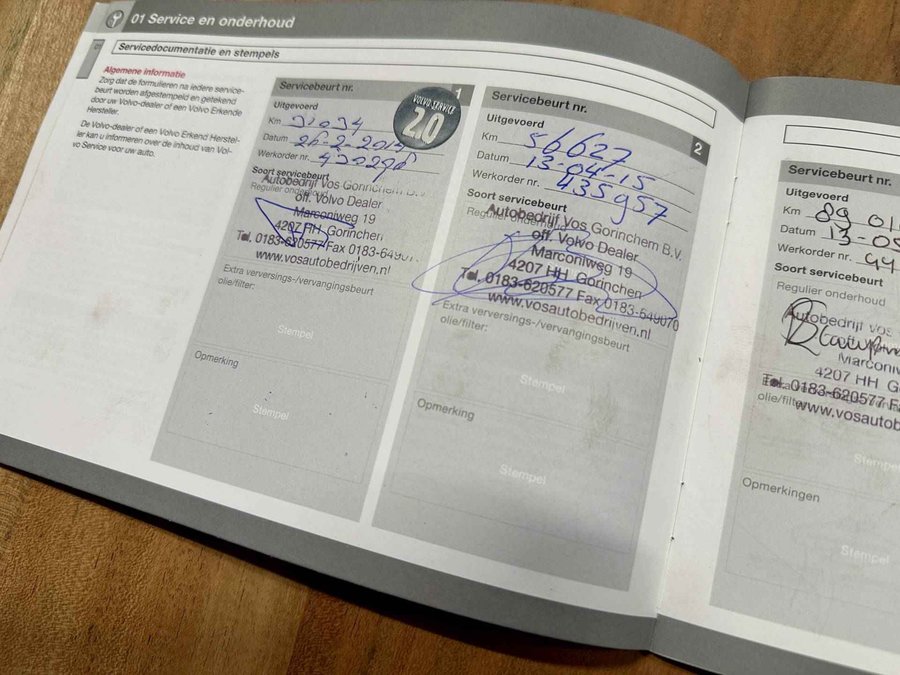 01 Service en onderhoud
01
Servicedocumentatie en stempels
Algemene informatie
Zorg dat de formulieren na iedere service-
beurt worden afgestempeld en getekend
door uw Volvo-dealer of een Volvo Erkende
Hersteller.
De Volvo-dealer of een Volvo Erkend Herstel-
ler kan u informeren over de inhoud van Vol-
vo Service voor uw auto.
Servicebeurt nr.
1
VOLVO SERVICE
2.0
Uitgevoerd
Km 31034
Datum 26-2-2014
Werkorder nr.
Soort servicebeurt
Regulier onderhoud
Autobedrijf Vos Gorinchem B.V.
off. Volvo Dealer
Marconiweg 19
4207 HH Gorinchem
Tel. 0183-620577 Fax 0183-649070
www.vosautobedrijven.nl
Extra verversings-/vervangingsbeurt
olie/filter:
Stempel
Opmerking
Stempel
Servicebeurt nr.
2
Uitgevoerd
Km 56627
Datum 13-04-15
Werkorder nr. 435957
Soort servicebeurt
Regulier onderhoud
Autobedrijf Vos Gorinchem B.V.
off. Volvo Dealer
Marconiweg 19
4207 HH Gorinchem
Tel. 0183-620577 Fax 0183-649070
www.vosautobedrijven.nl
Extra verversings-/vervangingsbeurt
olie/filter:
Stempel
Opmerking
Stempel
Servicebeurt nr.
Uitgevoerd
Km 89 01
Datum 13-05
Werkorder nr. 44
Soort servicebeurt
Regulier onderhoud
Autobedrijf Vos
Marconi
4207 HH G
Tel. 0183-620577 F
Extra verversings-/verva
olie/filter:
www.vosautob
Stempel
Opmerkingen
Stempel